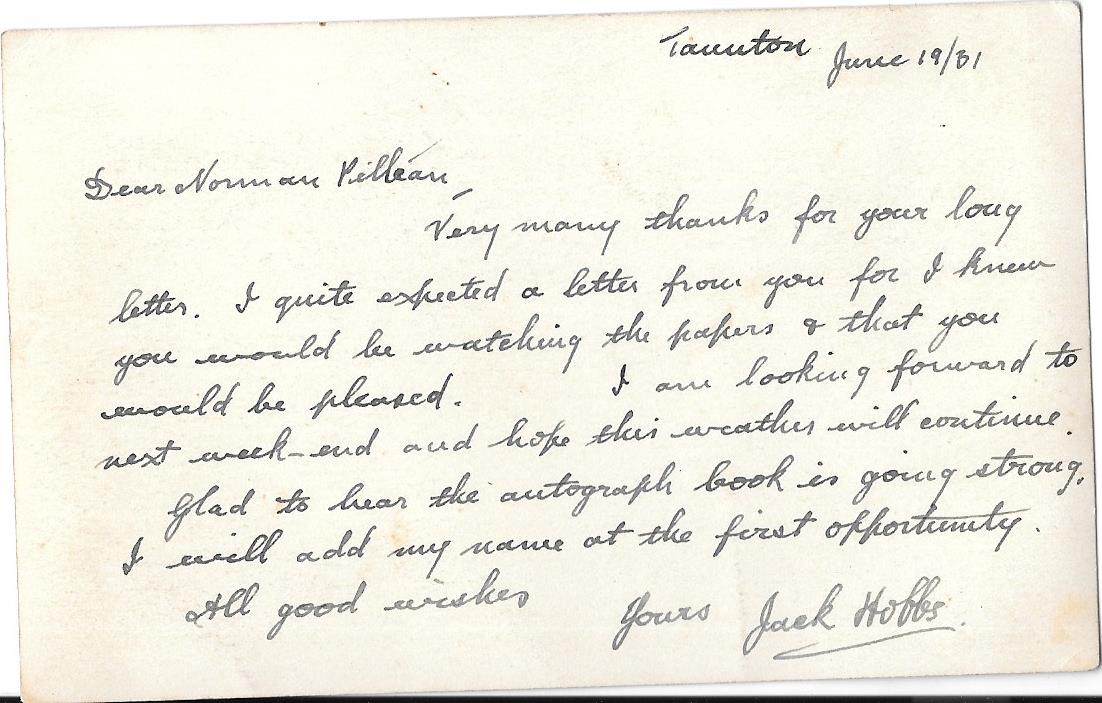 Taunton June 19/31
Dear Norman Pilléan,
Very many thanks for your long
letter. I quite expected a letter from you for I knew
you would be watching the papers & that you
would be pleased. I am looking forward to
next week-end and hope this weather will continue.
Glad to hear the autograph book is going strong.
I will add my name at the first opportunity.
All good wishes
Yours Jack Hobbs.